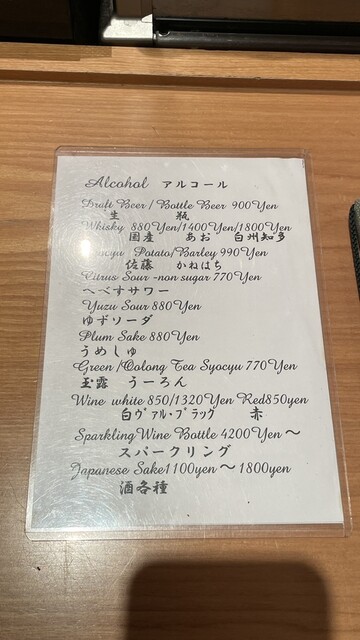 Alcohol アルコール
Draft Beer / Bottle Beer 900Yen
生 瓶
Whisky 880Yen/1400Yen/1800Yen
国産 あお 白州知多
Potato/Barley 990Yen
佐藤 かねはち
Citrus Sour -non sugar 770Yen
へべすサワー
Yuzu Sour 880Yen
ゆずソーダ
Plum Sake 880Yen
うめしゅ
Green /Oolong Tea Syocyu 770Yen
玉露 うーろん
Wine white 850/1320Yen Red850yen
白ヴァル･ブラック 赤
Sparkling Wine Bottle 4200Yen～
スパークリング
Japanese Sake1100yen～1800yen
酒各種